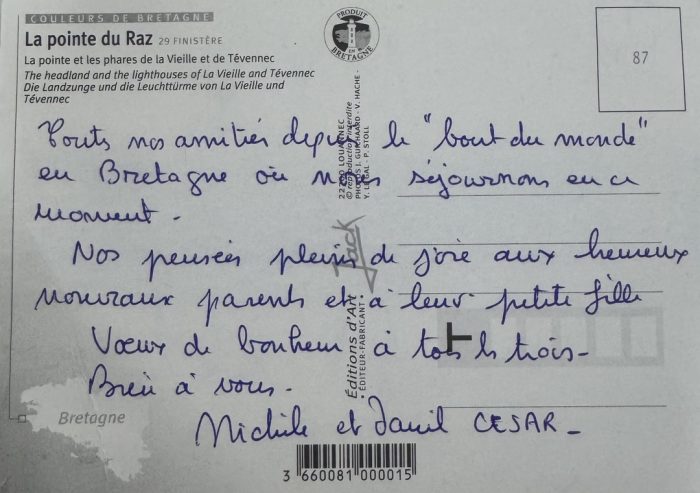 COULEURS DE BRETAGNE
La pointe du Raz 29 FINISTÈRE
La pointe et les phares de la Vieille et de Tévennec
The headland and the lighthouses of La Vieille and Tévennec
Die Landzunge und die Leuchttürme von La Vieille und
Tévennec
PRODUIT EN BRETAGNE
87
Touts nos amitiés depuis le "bout du monde"
en Bretagne où nous séjournons en ce
moment.
Nos pensées pleins de joie aux heureux
nouveaux parents et à leur petite fille
Vœux de bonheur à tous les trois-
Bien à vous.
Michèle et Daniel CESAR-
22200 LOUANNEC
© reproduction interdite
PHOTOS J. GUICHARD - V. HACHE -
Y. LE GAL - P. STOLL
Jack
Éditions d'Art
• ÉDITEUR-FABRICANT •
Bretagne
3 660081 000015